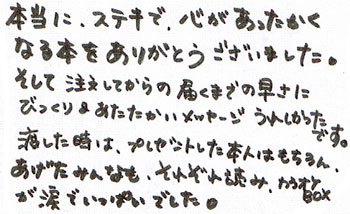 本当に、ステキで、心があったかく
なる本をありがとうございました。
そして注文してからの届くまでの早さに
びっくり&あたたかいメッセージ うれしかった
です。
渡した時は、プレゼントした本人はもちろん、
あげたみんなも、それぞれ読み、カラオケ
BOX
が涙でいっぱいでした。